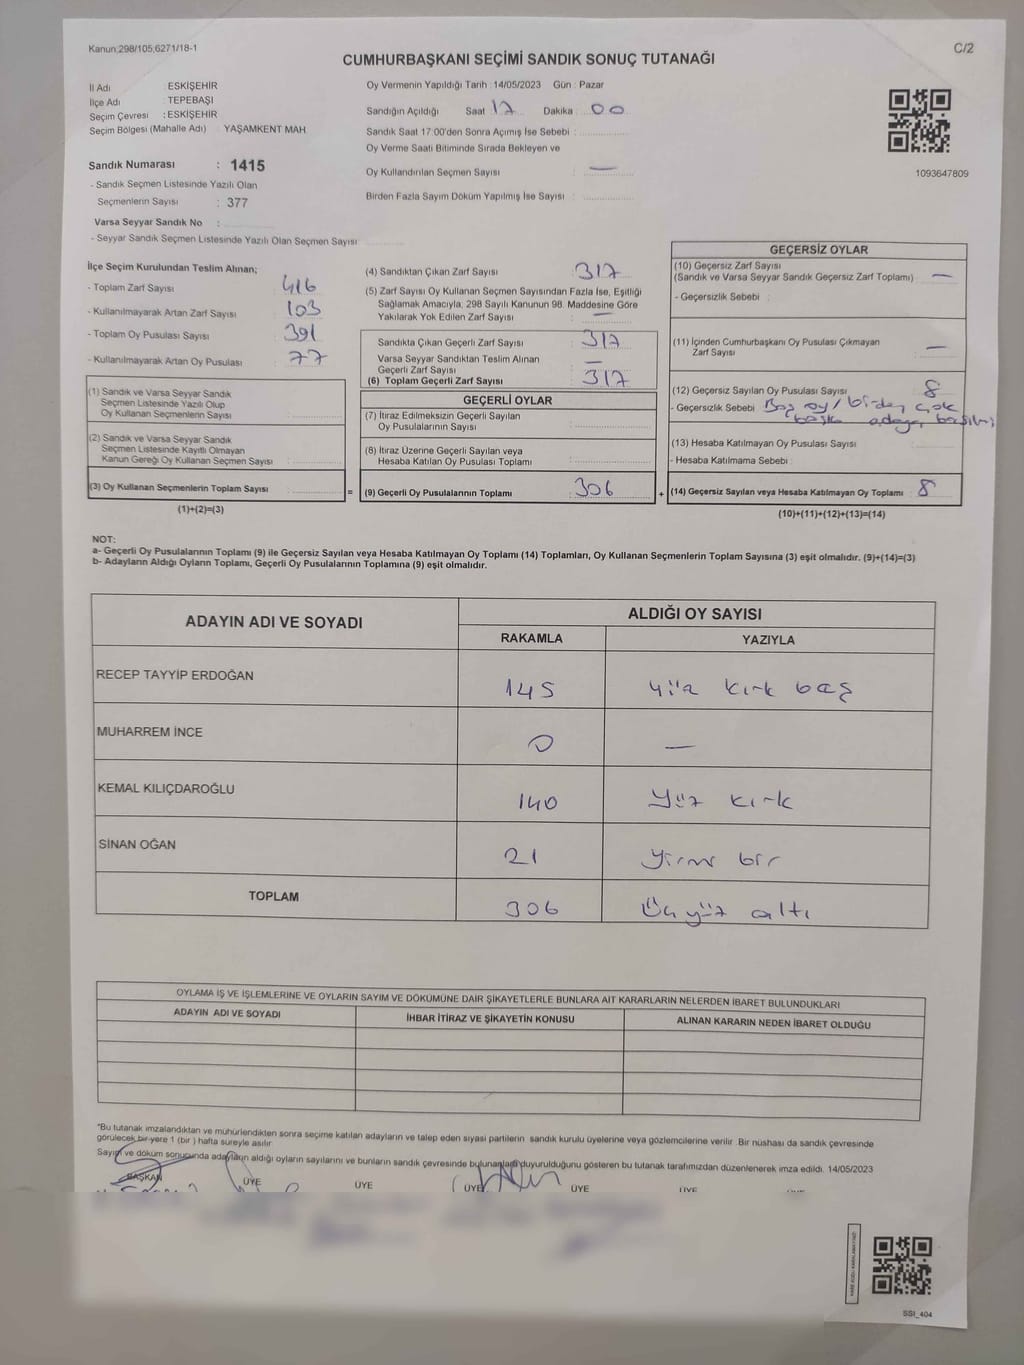 Kanun:298/105,6271/18-1
C/2
CUMHURBAŞKANI SEÇİMİ SANDIK SONUÇ TUTANAĞI
İl Adı : ESKİŞEHİR
İlçe Adı : TEPEBAŞI
Seçim Çevresi : ESKİŞEHİR
Seçim Bölgesi (Mahalle Adı) : YAŞAMKENT MAH
Sandık Numarası : 1415
- Sandık Seçmen Listesinde Yazılı Olan
Seçmenlerin Sayısı : 377
Varsa Seyyar Sandık No :
- Seyyar Sandık Seçmen Listesinde Yazılı Olan Seçmen Sayısı:
Oy Vermenin Yapıldığı Tarih : 14/05/2023 Gün : Pazar
Sandığın Açıldığı Saat 17 Dakika : 00
Sandık Saat 17:00'den Sonra Açımış İse Sebebi :
Oy Verme Saati Bitiminde Sırada Bekleyen ve
Oy Kullandırılan Seçmen Sayısı : —
Birden Fazla Sayım Döküm Yapılmış İse Sayısı :
1093647809
İlçe Seçim Kurulundan Teslim Alınan;
- Toplam Zarf Sayısı : 416
- Kullanılmayarak Artan Zarf Sayısı : 103
- Toplam Oy Pusulası Sayısı : 391
- Kullanılmayarak Artan Oy Pusulası : 77
(1) Sandık ve Varsa Seyyar Sandık
Seçmen Listesinde Yazılı Olup
Oy Kullanan Seçmenlerin Sayısı :
(2) Sandık ve Varsa Seyyar Sandık
Seçmen Listesinde Kayıtlı Olmayan
Kanun Gereği Oy Kullanan Seçmen Sayısı :
(3) Oy Kullanan Seçmenlerin Toplam Sayısı :
(1)+(2)=(3)
(4) Sandıktan Çıkan Zarf Sayısı : 317
(5) Zarf Sayısı Oy Kullanan Seçmen Sayısından Fazla İse, Eşitliği
Sağlamak Amacıyla, 298 Sayılı Kanunun 98. Maddesine Göre
Yakılarak Yok Edilen Zarf Sayısı : —
Sandıkta Çıkan Geçerli Zarf Sayısı : 317
Varsa Seyyar Sandıktan Teslim Alınan
Geçerli Zarf Sayısı : —
(6) Toplam Geçerli Zarf Sayısı : 317
GEÇERLİ OYLAR
(7) İtiraz Edilmeksizin Geçerli Sayılan
Oy Pusulalarının Sayısı :
(8) İtiraz Üzerine Geçerli Sayılan veya
Hesaba Katılan Oy Pusulası Toplamı :
= (9) Geçerli Oy Pusulalarının Toplamı : 306
GEÇERSİZ OYLAR
(10) Geçersiz Zarf Sayısı
(Sandık ve Varsa Seyyar Sandık Geçersiz Zarf Toplamı) : —
- Geçersizlik Sebebi :
(11) İçinden Cumhurbaşkanı Oy Pusulası Çıkmayan
Zarf Sayısı : —
(12) Geçersiz Sayılan Oy Pusulası Sayısı : 8
- Geçersizlik Sebebi : Boş oy / birden çok
adaya
(13) Hesaba Katılmayan Oy Pusulası Sayısı :
- Hesaba Katılmama Sebebi :
+ (14) Geçersiz Sayılan veya Hesaba Katılmayan Oy Toplamı : 8
(10)+(11)+(12)+(13)=(14)
NOT:
a- Geçerli Oy Pusulalarının Toplamı (9) ile Geçersiz Sayılan veya Hesaba Katılmayan Oy Toplamı (14) Toplamları, Oy Kullanan Seçmenlerin Toplam Sayısına (3) eşit olmalıdır. (9)+(14)=(3)
b- Adayların Aldığı Oyların Toplamı, Geçerli Oy Pusulalarının Toplamına (9) eşit olmalıdır.
ADAYIN ADI VE SOYADI
ALDIĞI OY SAYISI
RAKAMLA YAZIYLA
RECEP TAYYİP ERDOĞAN 145 yüz kırk beş
MUHARREM İNCE 0 —
KEMAL KILIÇDAROĞLU 140 yüz kırk
SİNAN OĞAN 21 yirmi bir
TOPLAM 306 Üç yüz altı
OYLAMA İŞ VE İŞLEMLERİNE VE OYLARIN SAYIM VE DÖKÜMÜNE DAİR ŞİKAYETLERLE BUNLARA AİT KARARLARIN NELERDEN İBARET BULUNDUKLARI
ADAYIN ADI VE SOYADI İHBAR İTİRAZ VE ŞİKAYETİN KONUSU ALINAN KARARIN NEDEN İBARET OLDUĞU
*Bu tutanak imzalandıktan ve mühürlendikten sonra seçime katılan adayların ve talep eden siyasi partilerin sandık kurulu üyelerine veya gözlemcilerine verilir. Bir nüshası da sandık çevresinde
görülecek bir yere 1 (bir) hafta süreyle asılır.
Sayım ve döküm sonucunda adayların aldığı oyların sayılarını ve bunların sandık çevresinde bulunanlara duyurulduğunu gösteren bu tutanak tarafımızdan düzenlenerek imza edildi. 14/05/2023
BAŞKAN ÜYE ÜYE ÜYE ÜYE ÜYE
SSI_404